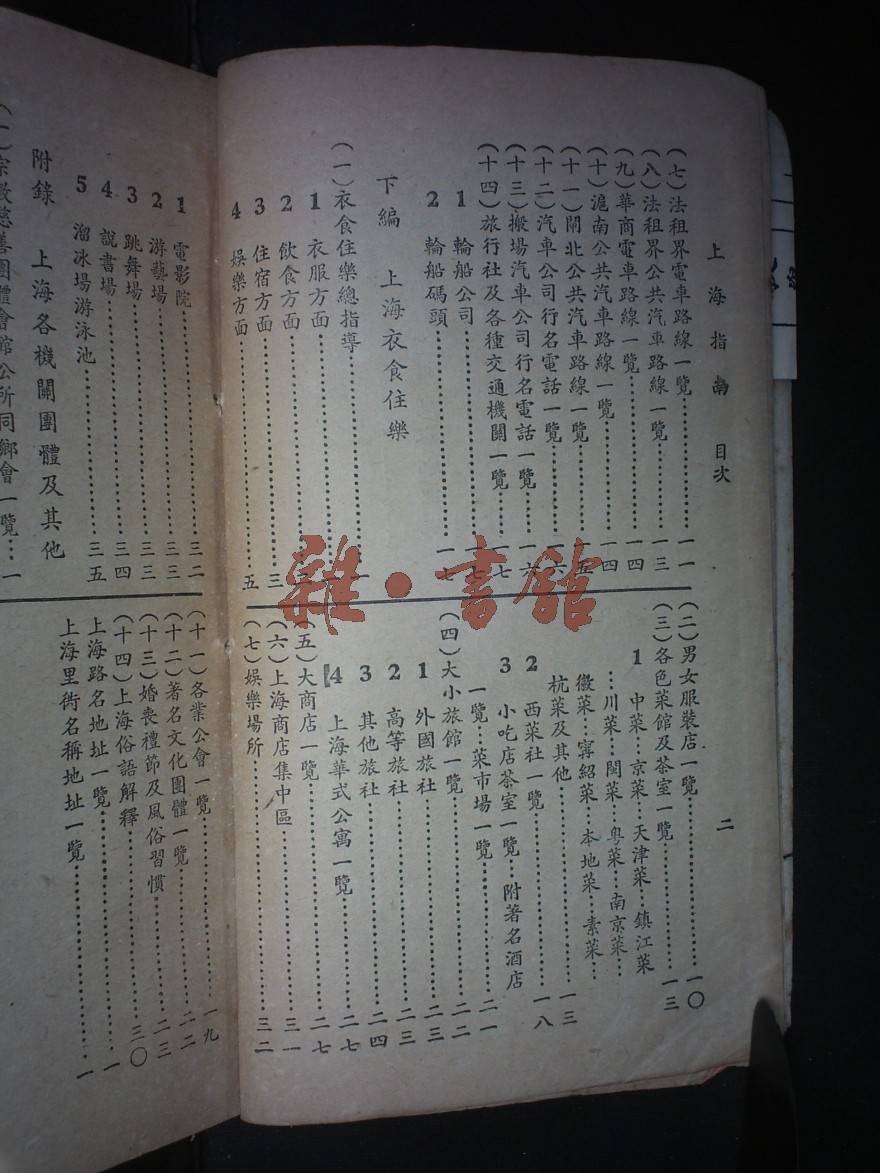 上海指南 目次 二
(七)法租界電車路線一覽 一一
(八)法租界公共汽車路線一覽 一三
(九)華商電車路線一覽 一四
(十)滬南公共汽車路線一覽 一四
(十一)閘北公共汽車路線一覽
(十二)汽車公司行名電話一覽 一六
(十三)搬場汽車公司行名電話一覽 一六
(十四)旅行社及各種交通機關一覽 一七
1 輪船公司
2 輪船碼頭
下編 上海衣食住樂
(一)衣食住樂總指導
1 衣服方面
2 飲食方面
3 住宿方面 三
4 娛樂方面 五
(二)男女服裝店一覽 一〇
(三)各色菜館及茶室一覽 一三
1 中菜…京菜…天津菜…鎮江菜
…川菜…閩菜…粤菜…南京菜…
徽菜…寧紹菜…本地菜…素菜…
杭菜及其他 一三
2 西菜社一覽 一八
3 小吃店茶室一覽 附著名酒店
一覽…菜市場一覽 二一
(四)大小旅館一覽 二二
1 外國旅社 二三
2 高等旅社 二三
3 其他旅社 二四
4 上海華式公寓一覽 二七
(五)大商店一覽 二七
(六)上海商店集中區 三一
(七)娛樂場所 三二
1 電影院 三二
2 游藝場 三三
3 跳舞場 三三
4 說書場 三四
5 溜冰場游泳池 三五
附錄 上海各機關團體及其他
(一)宗教慈善團體會館公所同鄉會一覽 一
(十一)各業公會一覽 一九
(十二)著名文化團體一覽 二二
(十三)婚喪禮節及風俗習慣 二三
(十四)上海俗語解釋 三〇
上海路名地址一覽 一
上海里衖名稱地址一覽 一
雜·書館